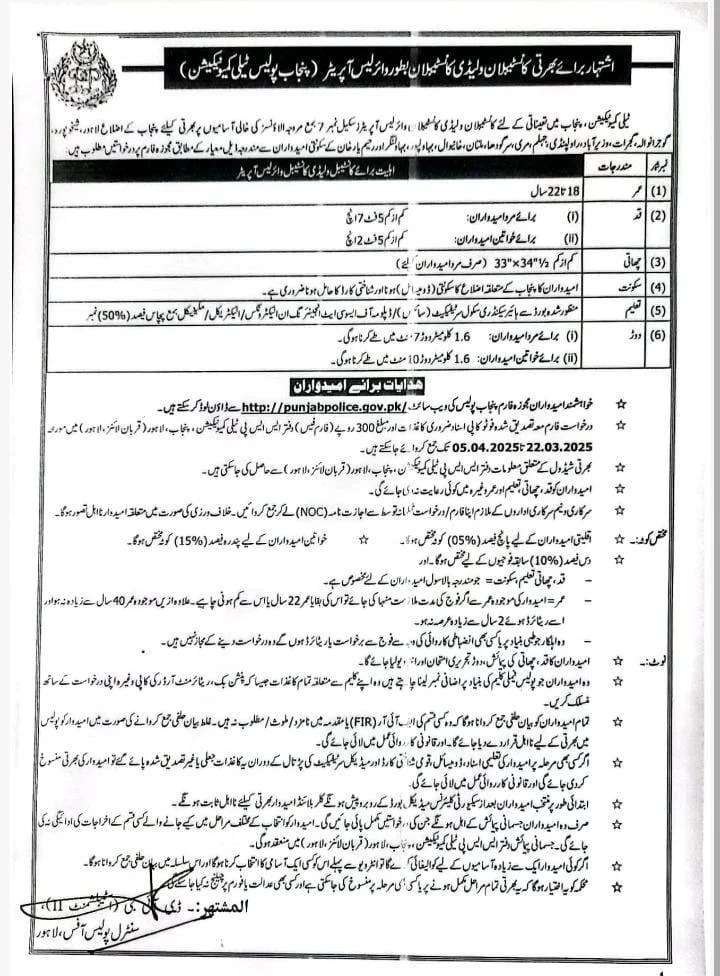 اشتہار برائے بھرتی کانسٹیبلان ولیڈی کانسٹیبلان بطور وائرلیس آپریٹر (پنجاب پولیس ٹیلی کمیونیکیشن)
ٹیلی کمیونیکیشن، پنجاب میں تعیناتی کے لئے کانسٹیبلان ولیڈی کانسٹیبلان وائرلیس آپریٹرز سکیل نمبر 7 بمع مروجہ الاؤنسز کی خالی آسامیوں پر بھرتی کیلئے پنجاب کے اضلاع لاہور، شیخوپورہ،
گوجرانوالہ، گجرات، وزیرآباد، راولپنڈی، جہلم، مری، سرگودھا، ملتان، خانیوال، بہاولپور، بہاولنگر اور رحیم یارخان کے سکونتی امیدواران سے مندرجہ ذیل معیار کے مطابق مجوزہ فارم پر درخواستیں مطلوب ہیں۔
نمبر شمار مندرجات اہلیت برائے کانسٹیبل ولیڈی کانسٹیبل وائرلیس آپریٹر
(1) عمر 18 تا 22 سال
(2) قد (i) برائے مرد امیدواران: کم از کم 5 فٹ 7 انچ
(ii) برائے خواتین امیدواران: کم از کم 5 فٹ 2 انچ
(3) چھاتی کم از کم 33"×34½" (صرف مرد امیدواران کیلئے)
(4) سکونت امیدواران کا پنجاب کے متعلقہ اضلاع کا سکونتی (ڈومیسائل) ہونا اور شناختی کارڈ کا حامل ہونا ضروری ہے۔
(5) تعلیم منظور شدہ بورڈ سے ہائیر سیکنڈری سکول سرٹیفکیٹ (سائنس)/ ڈپلومہ آف ایسوسی ایٹ انجینئرنگ ان الیکٹرونکس/ الیکٹریکل/ مکینیکل بمع پچاس فیصد (50%) نمبر
(6) دوڑ (i) برائے مرد امیدواران: 1.6 کلومیٹر دوڑ 7 منٹ میں طے کرنا ہوگی۔
(ii) برائے خواتین امیدواران: 1.6 کلومیٹر دوڑ 10 منٹ میں طے کرنا ہوگی۔
ھدایات برائے امیدواران
☆ خواہشمند امیدواران مجوزہ فارم پنجاب پولیس کی ویب سائٹ http://punjabpolice.gov.pk/ سے ڈاؤن لوڈ کر سکتے ہیں۔
☆ درخواست فارم معہ تصدیق شدہ فوٹو کاپی اسناد ضروری کاغذات اور مبلغ 300 روپے (فارم فیس) دفتر ایس ایس پی ٹیلی کمیونیکیشن، پنجاب، لاہور (قربان لائنز، لاہور) میں مورخہ
22.03.2025 تا 05.04.2025 تک جمع کروائے جاسکتے ہیں۔
☆ بھرتی شیڈول کے متعلق معلومات دفتر ایس ایس پی ٹیلی کمیونیکیشن، پنجاب، لاہور (قربان لائنز، لاہور) سے حاصل کی جاسکتی ہیں۔
☆ امیدواران کو قد، چھاتی، تعلیم اور عمر وغیرہ میں کوئی رعایت نہ دی جائے گی۔
☆ سرکاری و نیم سرکاری اداروں کے ملازم اپنا فارم/ درخواست محکمانہ توسط سے اجازت نامہ (NOC) لے کر جمع کروائیں۔ خلاف ورزی کی صورت میں متعلقہ امیدوار نا اہل تصور ہوگا۔
مختص کوٹہ:۔ ☆ اقلیتی امیدواران کے لیے پانچ فیصد (05%) کوٹہ مختص ہوگا۔ ☆ خواتین امیدواران کے لیے پندرہ فیصد (15%) کوٹہ مختص ہوگا۔
☆ دس فیصد (10%) سابقہ فوجیوں کے لیے مختص ہوگا۔ اور
– قد، چھاتی تعلیم، سکونت = جو مندرجہ بالا سول امیدواران کے لئے مخصوص ہے۔
– عمر = امیدوار کی موجودہ عمر سے اگر فوج کی مدت ملازمت منہا کی جائے تو اس کی بقایا عمر 22 سال یا اس سے کم ہونی چاہیے۔ علاوہ ازیں موجودہ عمر 40 سال سے زیادہ نہ ہو اور
اسے ریٹائرڈ ہوئے 2 سال سے زیادہ عرصہ نہ ہو۔
– وہ اہلکار جو طبی بنیاد پر یا کسی بھی انضباطی کاروائی کی وجہ سے فوج سے برخاست یا ریٹائرڈ ہوں گے وہ درخواست دینے کے مجاز نہیں ہیں۔
نوٹ:۔ ☆ امیدواران کا قد، چھاتی کی پیمائش، دوڑ، تحریری امتحان اور انٹرویو لیا جائے گا۔
☆ وہ امیدواران جو پولیس فیملی کلیم کی بنیاد پر اضافی نمبر لینا چاہتے ہیں وہ اپنے کلیم سے متعلقہ تمام کاغذات جیسا کہ پنشن بک، ریٹائرمنٹ آرڈر کی کاپی وغیرہ اپنی درخواست کے ساتھ
منسلک کریں۔
☆ تمام امیدواران کو بیان حلفی جمع کروانا ہوگا کہ وہ کسی قسم کی ایف آئی آر (FIR) یا مقدمہ میں نامزد/ ملوث/ مطلوب نہ ہیں۔ غلط بیان حلفی جمع کروانے کی صورت میں امیدوار کو پولیس
میں بھرتی کے لیے نا اہل قرار دے دیا جائے گا۔ اور قانونی کاروائی عمل میں لائی جائے گی۔
☆ اگر کسی بھی مرحلہ پر امیدوار کی تعلیمی اسناد، ڈومیسائل، قومی شناختی کارڈ اور میڈیکل سرٹیفکیٹ کی پڑتال کے دوران یہ کاغذات جعلی یا غیر تصدیق شدہ پائے گئے تو امیدوار کی بھرتی منسوخ
کردی جائے گی اور قانونی کاروائی عمل میں لائی جائے گی۔
☆ ابتدائی طور پر منتخب امیدواران بعد از سیکیورٹی کلیئرنس میڈیکل بورڈ کے روبرو پیش ہونگے کلر بلائنڈ امیدوار بھرتی کیلئے نا اہل ثابت ہونگے۔
☆ صرف وہ امیدواران جسمانی پیمائش کے اہل ہونگے جن کی درخواستیں مکمل پائی جائیں گی۔ امیدوار کو انتخاب کے مختلف مراحل میں کیے جانے والے کسی قسم کے اخراجات کی ادائیگی نہ کی
جائے گی۔ جسمانی پیمائش (دفتر ایس ایس پی ٹیلی کمیونیکیشن، پنجاب، لاہور (قربان لائنز، لاہور) میں منعقد ہوگی۔
☆ اگر کوئی امیدوار ایک سے زیادہ آسامیوں کے لیے کوالیفائی کرے گا تو انٹرویو سے پہلے اس کو کسی ایک آسامی کا انتخاب کرنا ہوگا اور اس سلسلہ میں بیان حلفی جمع کروانا ہوگا۔
☆ محکمہ کو یہ اختیار ہوگا کہ یہ بھرتی تمام مراحل مکمل ہونے پر یا کسی مرحلہ پر منسوخ کی جاسکتی ہے اور کسی بھی عدالت یا فورم پر چیلنج نہ کیا جاسکے گا۔
المشتہر:۔ ڈی آئی جی (اسٹیبلشمنٹ II)،
سنٹرل پولیس آفس، لاہور